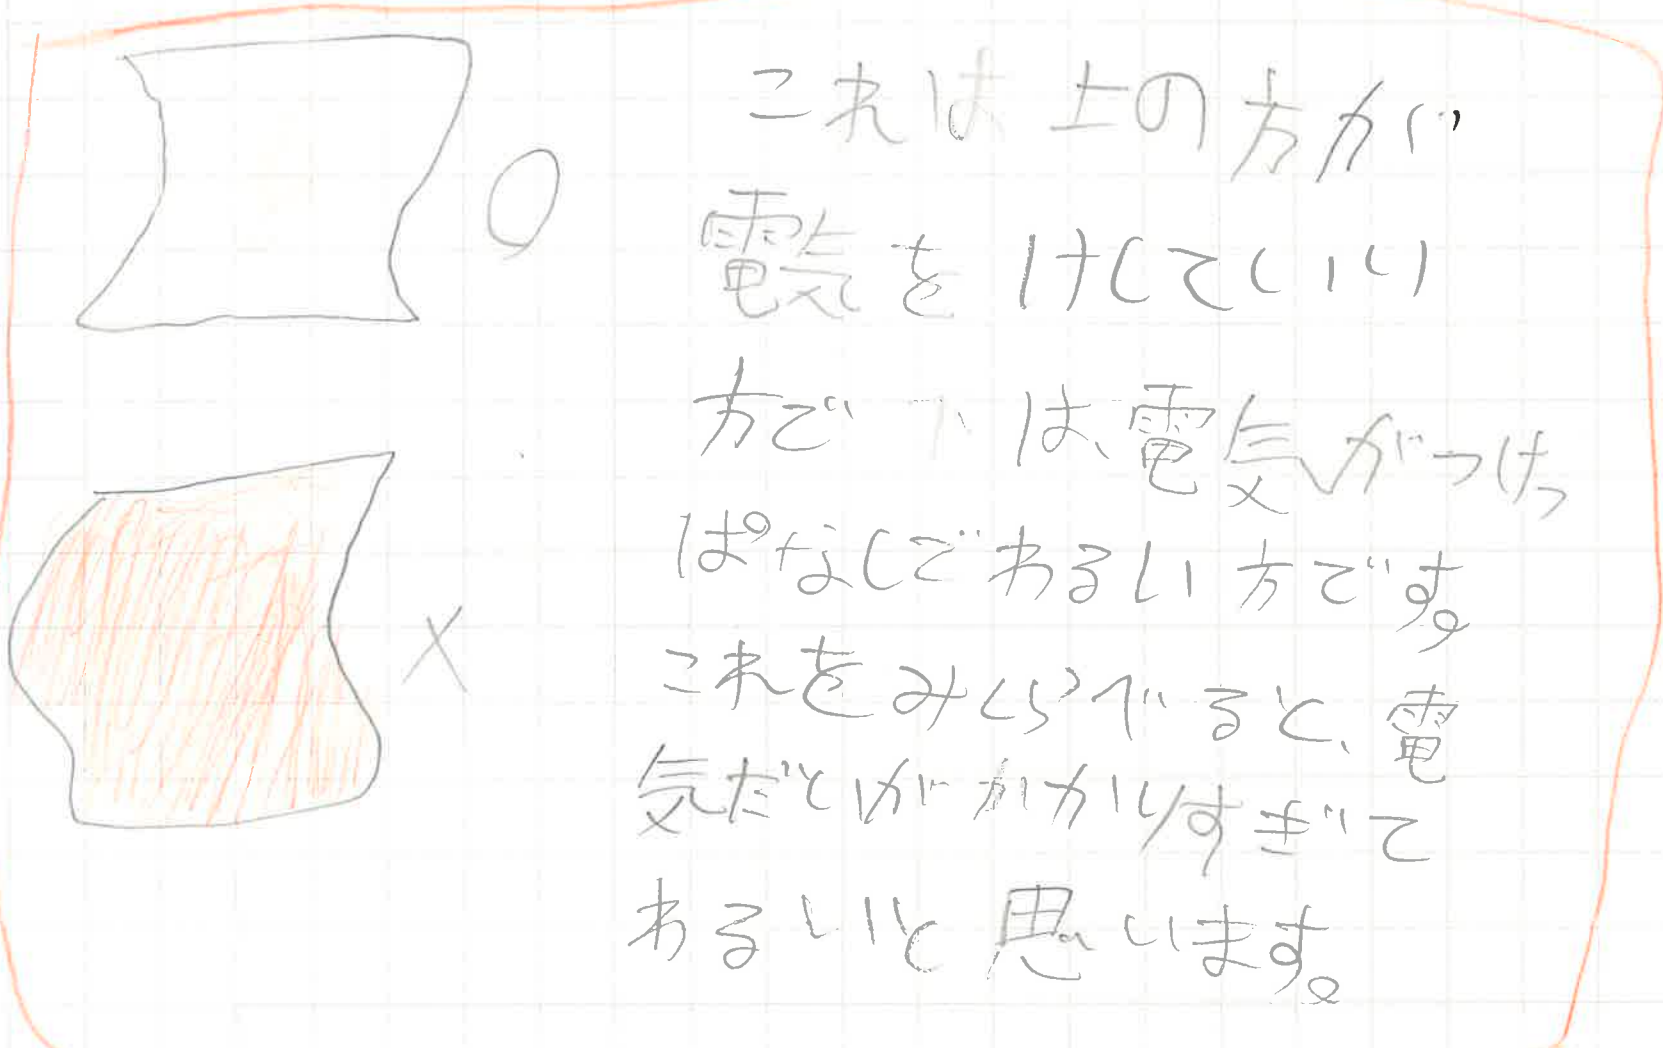 これは上の方が
○
電気をけしていい
方で下は、電気がつけっ
ぱなしでわるい方です。
×
これをみくらべると、電
気だいがかかりすぎて
わるいと思います。